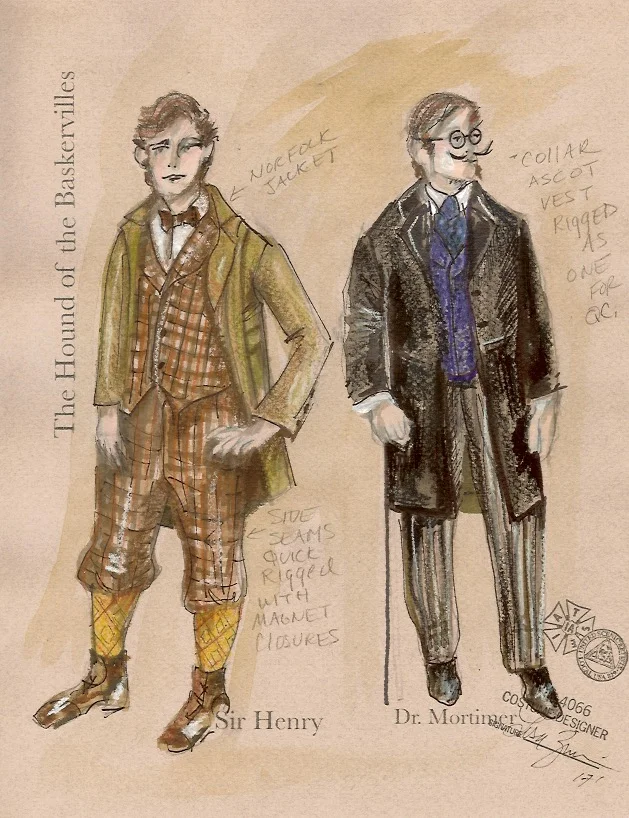 The Hound of the Baskervilles
NORFOLK
JACKET
COLLAR
ASCOT
VEST
RIGGED
AS
ONE
FOR
QC.
SIDE
SEAMS
QUICK
RIGGED
WITH
MAGNET
CLOSURES
Sir Henry
Dr. Mortimer
4066
DESIGNER
SIGNATURE